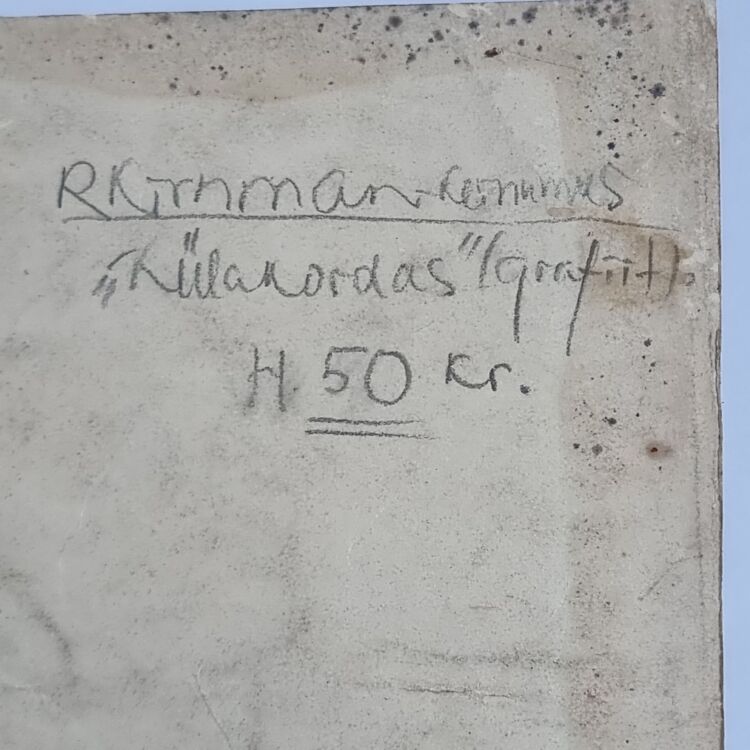 R Kirnman-Keinumus
„Külakordas" (grafiit).
H. 50 kr.